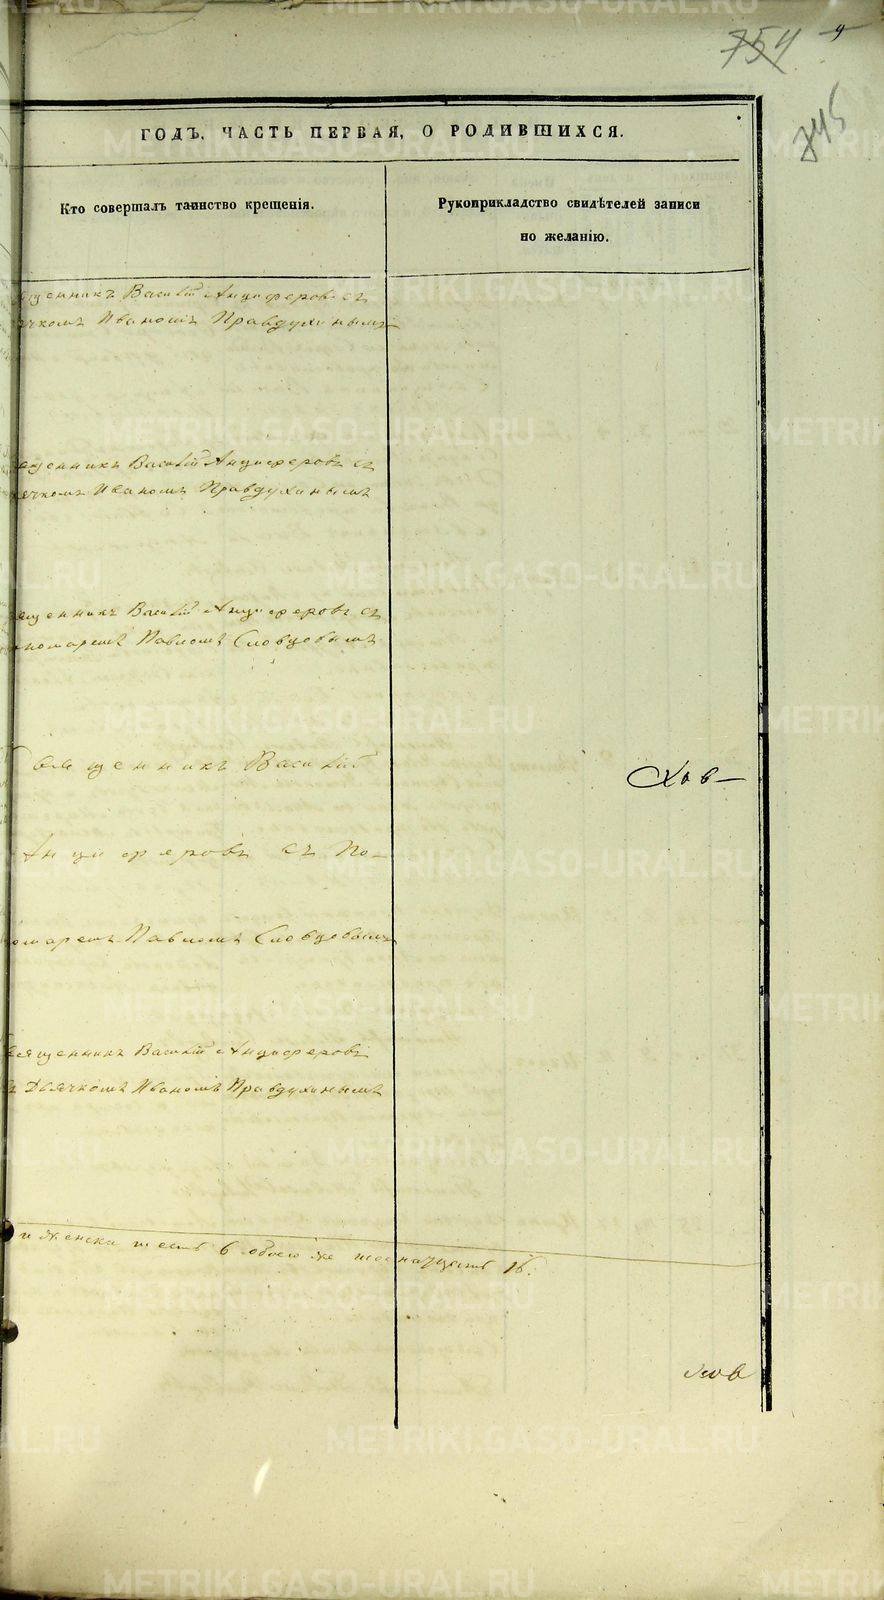 754
4
745
ГОДЪ, ЧАСТЬ ПЕРВАЯ, О РОДИВШИХСЯ.
Кто совершалъ таинство крещенія.
Рукоприкладство свидѣтелей записи
по желанію.
щенникъ Василій Анциферовъ съ
ячкомъ Иваномъ Правдухинымъ
щенникъ Василій Анциферовъ съ
ячкомъ Иваномъ Правдухинымъ
щенникъ Василій Анциферовъ съ
номаремъ Павломъ Словцовымъ
Священникъ Василій
Анциферовъ съ По-
номаремъ Павломъ Словцовымъ
Священникъ Василій Анциферовъ
съ Дьячкомъ Иваномъ Правдухинымъ
и женска шесть 6 обоего же шеснадцать 16.
METRIKI.GASO-URAL.RU